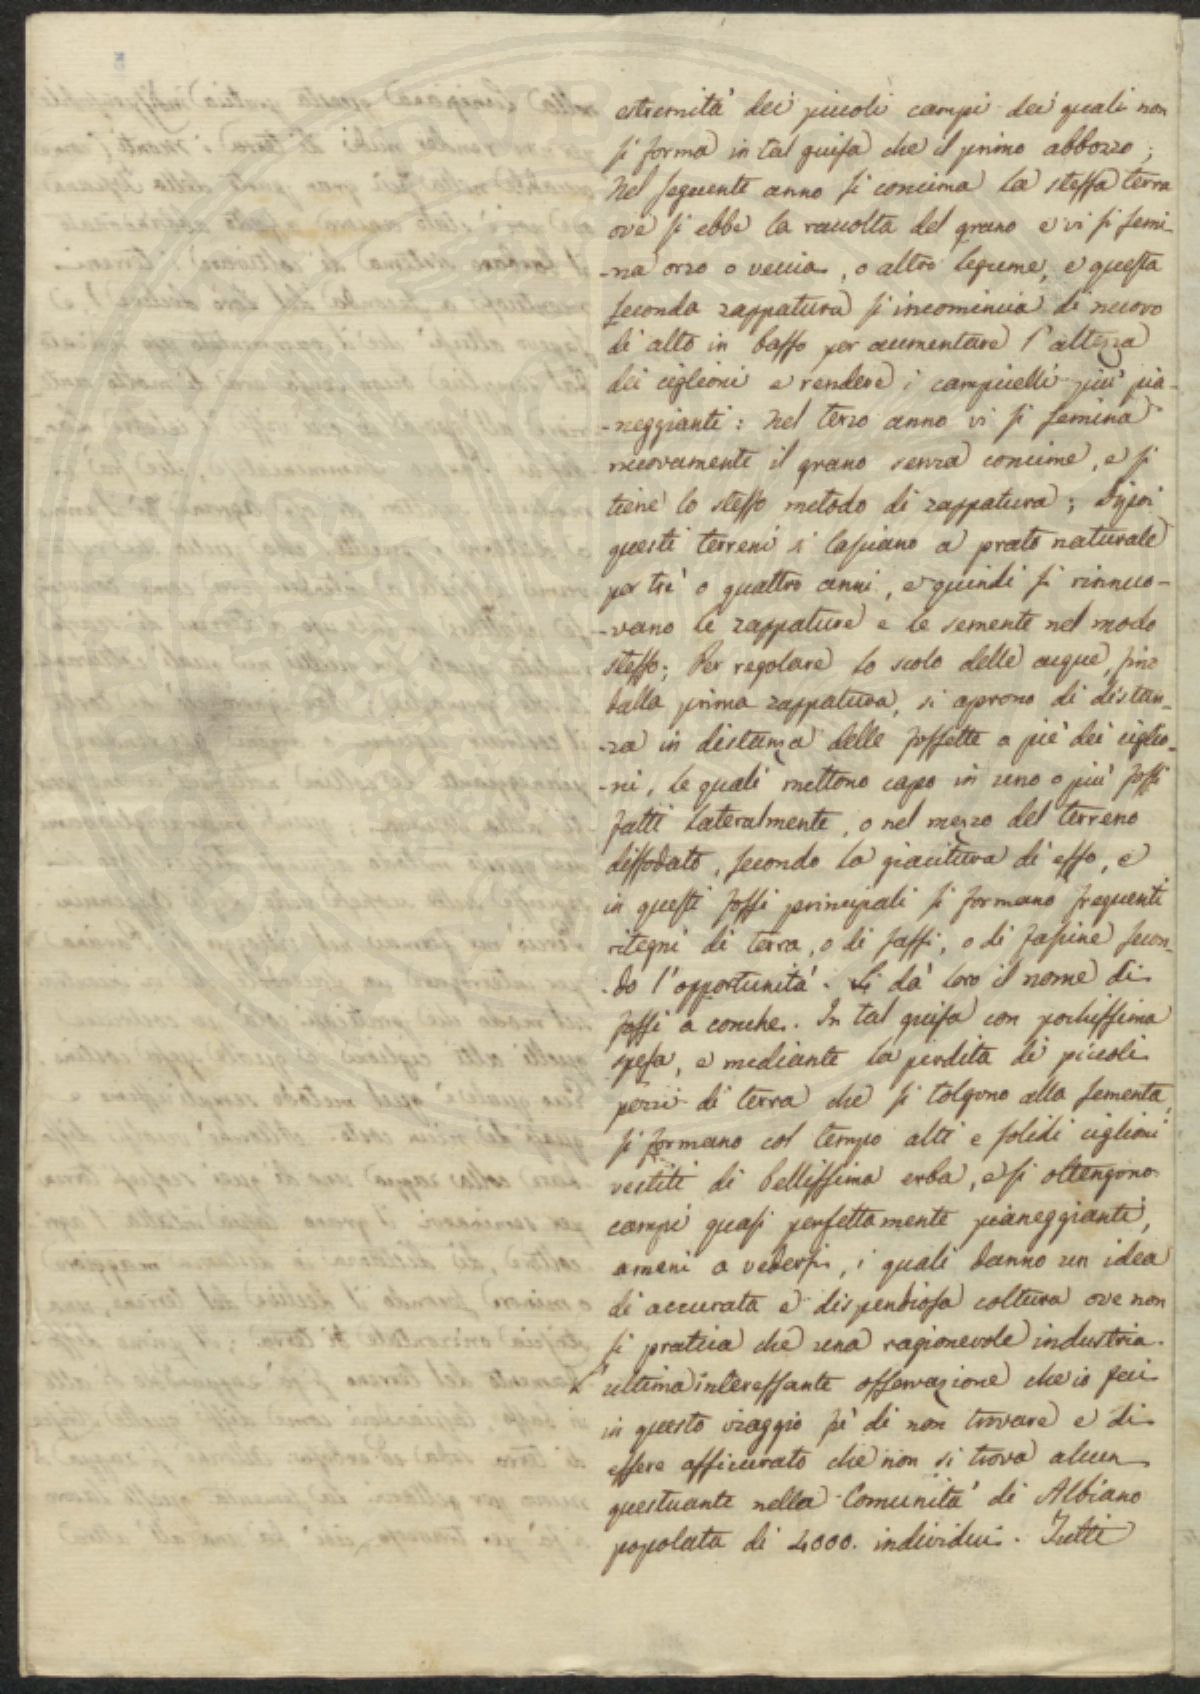 estremità dei piccoli campi dei quali non
si forma in tal guisa che il primo abbozzo;
Nel seguente anno si concima la stessa terra
ove si ebbe la raccolta del grano e vi si semi-
-na orzo o veccia, o altro legume, e questa
seconda zappatura si incomincia di nuovo
di alto in basso per aumentare l'altezza
dei ciglioni e rendere i campicelli più pia-
-neggianti: Nel terzo anno vi si semina
nuovamente il grano senza concime, e si
tiene lo stesso metodo di zappatura; Dipoi
questi terreni si lasciano a prato naturale
per trè o quattro anni, e quindi si rinnuo-
-vano le zappature e le semente nel modo
stesso; Per regolare lo scolo delle acque, fino
dalla prima zappatura, si aprono di distan-
-za in distanza delle fossette a piè dei ciglio-
-ni, le quali mettono capo in uno o più fossi
fatti lateralmente, o nel mezzo del terreno
dissodato, secondo la giacitura di esso, e
in questi fossi principali si formano frequenti
ritegni di terra, o di sassi, o di fascine secon-
-do l'opportunità. Si dà loro il nome di
fossi a conche. In tal guisa con pochissima
spesa, e mediante la perdita di piccoli
pezzi di terra che si tolgono alla sementa,
si formano col tempo alti e solidi ciglioni
vestiti di bellissima erba, e si ottengono
campi quasi perfettamente pianeggianti,
ameni a vedersi, i quali danno un idea
di accurata e dispendiosa coltura ove non
si pratica che una ragionevole industria.
L'ultima interessante osservazione che io feci
in questo viaggio fù di non trovare e di
essere assicurato che non si trova alcun
questuante nella Comunità di Albiano
popolata di 4000. individui. Tutti